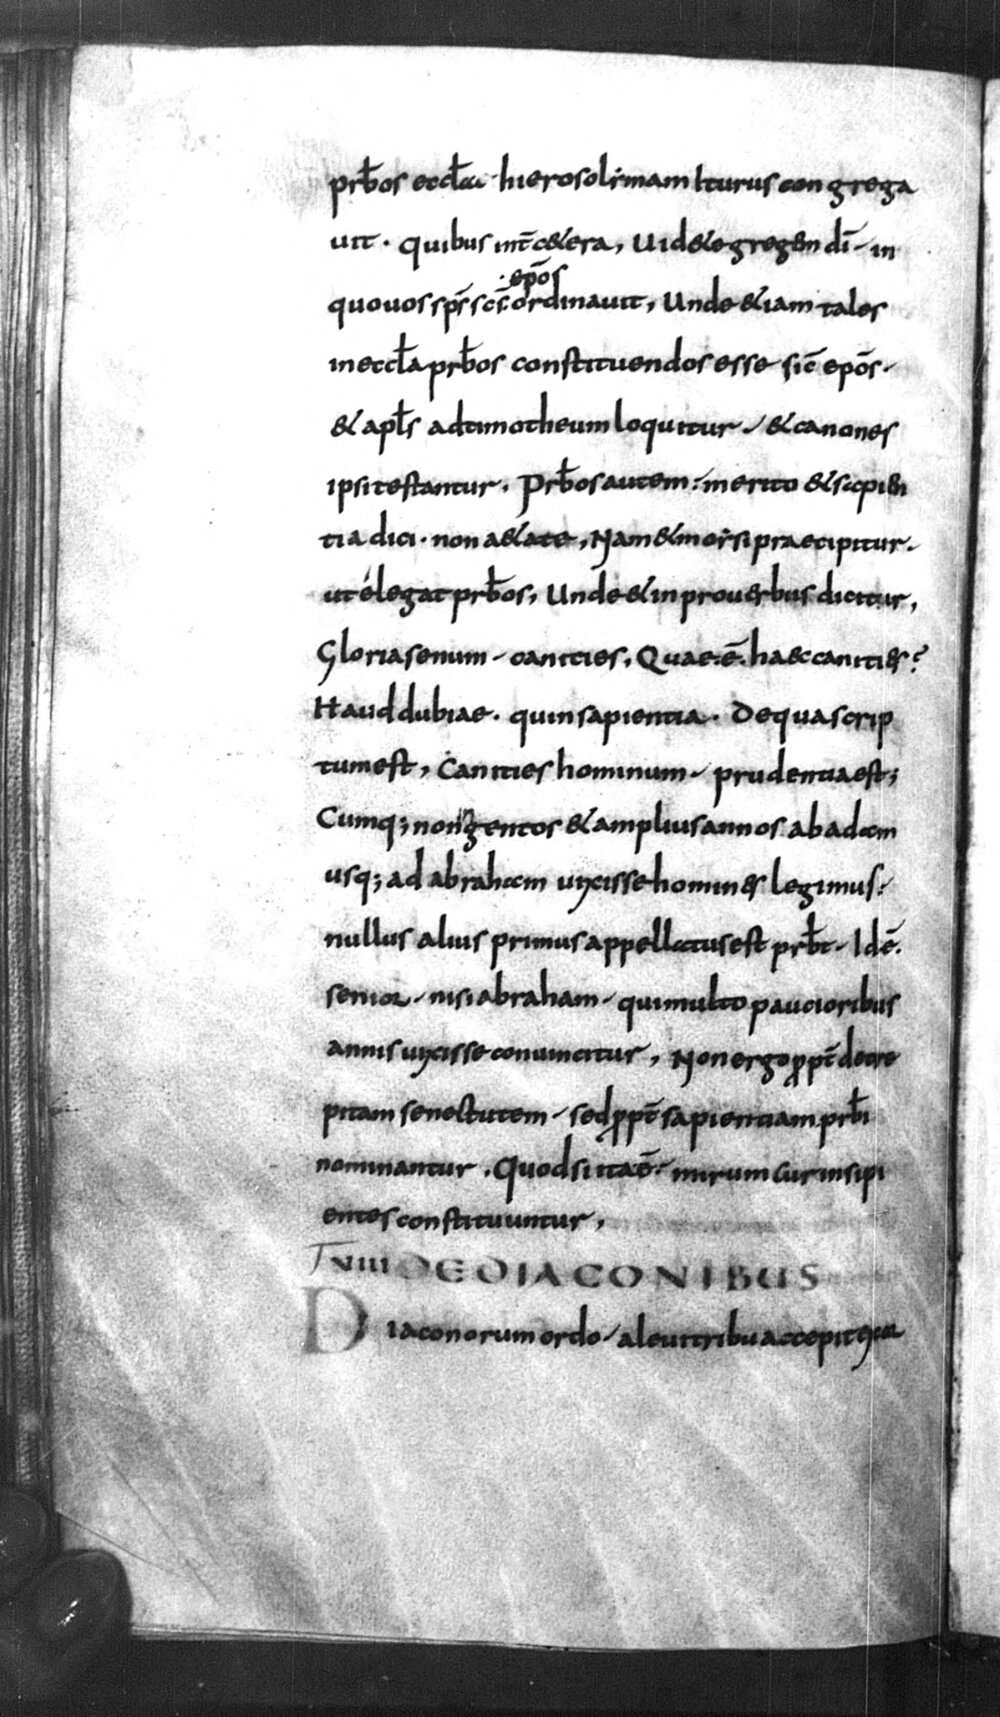 prb̄os eccl̄ae · hierosolimam iturus congrega
uit · quibus int̄ c&era, Uid&e gregem dī - in
quo uos sp̄s sc̄s · ep̄os ordinauit, Unde &iam tales
in eccl̄a prb̄os constituendos esse sic̄ ep̄os ·
& apl̄s ad timotheum loquitur - & canones
ipsi testantur, Prb̄os autem merito & sapien
tia dici · non a&ate, Nam & moẏsi praecipitur ·
ut elegat prb̄os, Unde & in prouerbus dicitur,
Gloria senum - canities, Quae · ē · haec canities?
Haud dubiae · quin sapientia · De qua scrip
tum est, Canities hominum - prudentia est;
Cumq; nongentos & amplius annos ab adam
usq; ad abraham uixisse homines legimus:
nullus alius primus appellatus est prb̄t - Id ē ·
senior - nisi abraham - qui multo paucioribus
annis uixisse conuincitur, Non ergo ꝓpt̄ decre
pitam senectutem - sed ꝓpt̄ sapientiam prb̄i
nominantur, Quod si ita ē - mirum cur insipi
entes constituuntur,
VIII DE DIACONIBUS
Diaconorum ordo - a leui tribu accepit